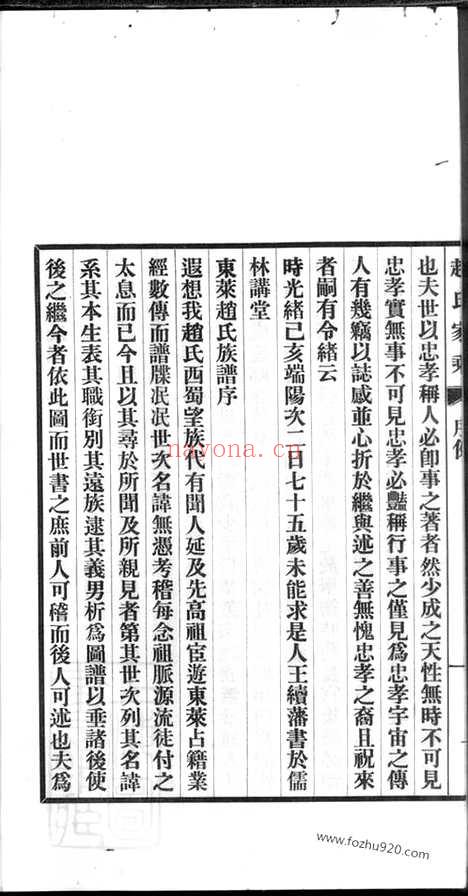 趙氏家乘 序例
也夫世以忠孝稱人必卽事之著者然少成之天性無時不可見
忠孝實無事不可見忠孝必豔稱行事之僅見爲忠孝字宙之傳
人有幾竊以誌感並心折於繼與述之善無愧忠孝之裔且祝來
者嗣有令緒云
時光緒己亥端陽次一日七十五歲未能求是人王續藩書於儒
林講堂
東萊趙氏族譜序
遐想我趙氏西蜀望族代有聞人延及先高祖宦遊東萊占籍業
經數傳而譜牒泯泯世次名諱無憑考稽每念祖脈源流徒付之
太息而已今且以其尋於所聞及所親見者第其世次列其名諱
系其本生表其職銜別其遠族逮其義男析爲圖譜以垂諸後使
後之繼今者依此圖而世書之庶前人可稽而後人可述也夫爲
nayona.cn
www.fozhu920.com